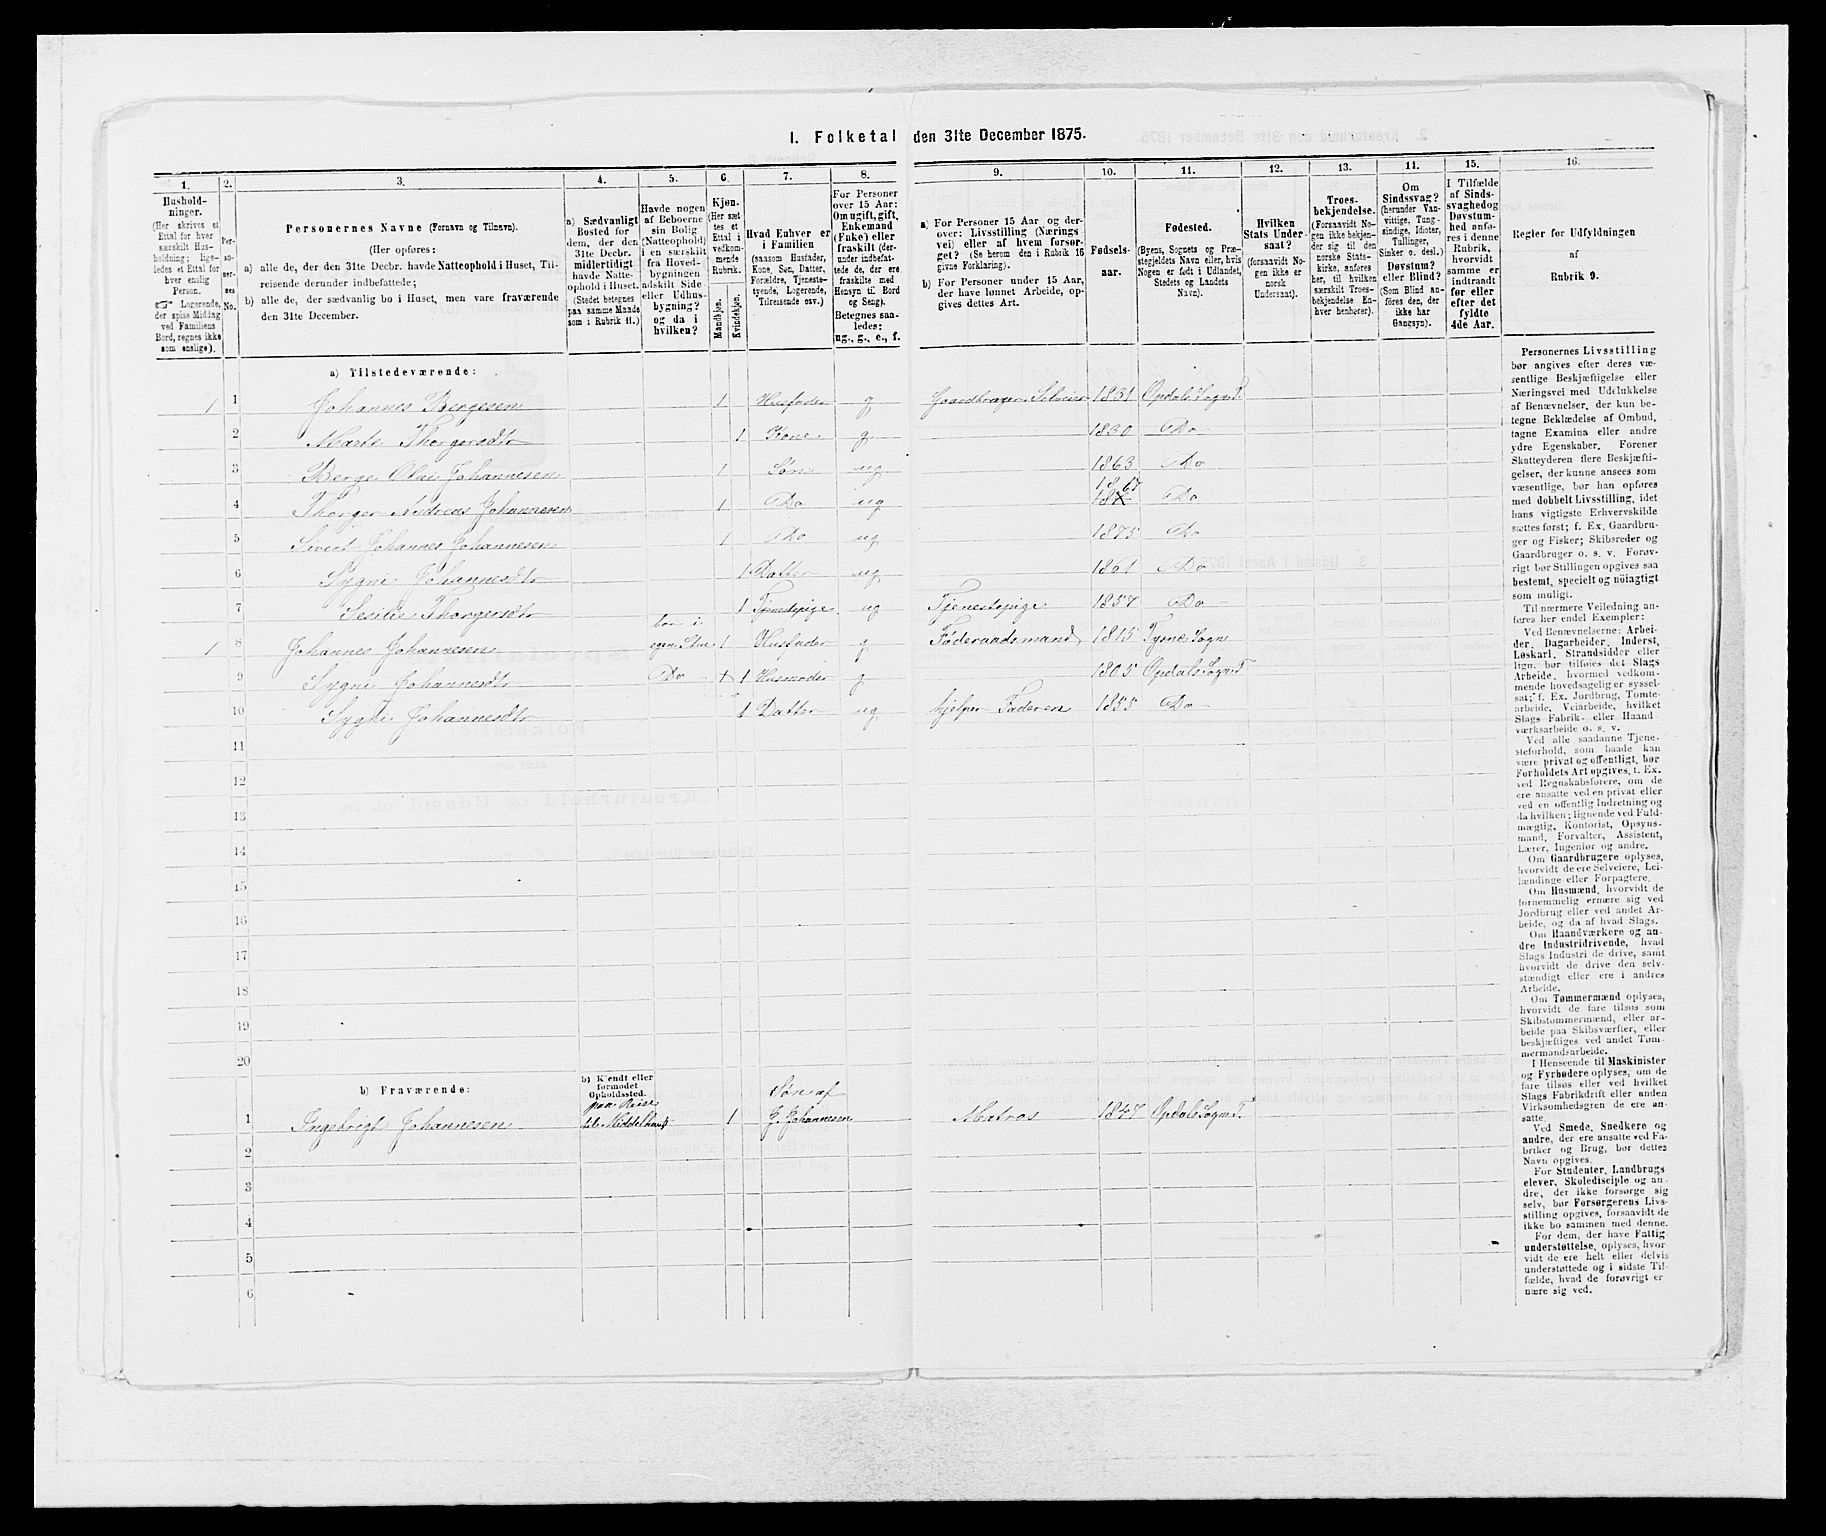 I. Folketal den 31te December 1875.
1. 2. 3. 4. 5. 6. 7. 8. 9. 10. 11. 12. 13. 14. 15. 16.
Hushold-
ninger.
(Her skrives et
Ettal for hver
særskilt Hus-
holdning; lige-
ledes et Ettal for
hver enslig
Person.
☞ Logerende,
der spise Middag
ved Familiens
Bord, regnes ikke
som enslige).
Per-
so-
ner-
nes
No.
Personernes Navne (Fornavn og Tilnavn).
(Her opføres:
a) alle de, der den 31te Decbr. havde Natteophold i Huset, Til-
reisende derunder indbefattede;
b) alle de, der sædvanlig bo i Huset, men vare fraværende
den 31te December.
a) Sædvanligt
Bosted for
dem, der den
31te Decbr.
midlertidigt
havde Natte-
ophold i Huset.
(Stedet betegnes
paa samme Maade
som i Rubrik 11.)
Havde nogen
af Beboerne
sin Bolig
(Natteophold)
i en særskilt
fra Hoved-
bygningen
adskilt Side-
eller Udhus-
bygning?
og da i
hvilken?
Kjøn.
(Her sæt-
tes et
Ettal i
vedkom-
mende
Rubrik.
Mandkjøn.
Kvindekjøn.
Hvad Enhver er
i Familien
(saasom Husfader,
Kone, Søn, Datter,
Forældre, Tjeneste-
tyende, Logerende,
Tilreisende osv.)
For Personer
over 15 Aar:
Om ugift, gift,
Enkemand
(Enke) eller
fraskilt (der-
under indbefat-
tede de, der ere
fraskilte med
Hensyn til Bord
og Seng).
Betegnes saa-
ledes:
ug., g., e., f.
a) For Personer 15 Aar og der-
over: Livsstilling (Nærings-
vei) eller af hvem forsør-
get? (Se herom den i Rubrik 16
givne Forklaring).
b) For Personer under 15 Aar,
der have lønnet Arbeide, op-
gives dettes Art.
Fødsels-
aar.
Fødested.
(Byens, Sognets og Præ-
stegjeldets Navn eller, hvis
Nogen er født i Udlandet,
Stedets og Landets
Navn).
Hvilken
Stats Under-
saat?
(forsaavidt No-
gen ikke er
norsk
Undersaat).
Troes-
bekjendelse.
(Forsaavidt No-
gen ikke bekjen-
der sig til den
norske Stats-
kirke, anføres
her, til hvilken
særskilt Troes-
bekjendelse En-
hver henhører).
Om
Sindssvag?
(herunder Van-
vittige, Tung-
sindige, Idioter,
Tullinger,
Sinker o. desl.)
Døvstum?
eller Blind?
(Som Blind an-
føres den, der
ikke har
Gangsyn).
I Tilfælde
af Sinds-
svaghed og
Døvstum-
hed anfø-
res i denne
Rubrik,
hvorvidt
samme er
indtraadt
før eller
efter det
fyldte
4de Aar.
Regler for Udfyldningen
af
Rubrik 9.
a) Tilstedeværende:
1 1 Johannes Bergesen 1 Husfader g Gaardbruger Selveier 1831 Opdals Sogn T.
2 Marte Thorgersdtr 1 Kone g 1830 Do
3 Berge Olai Johannesen 1 Søn ug 1863 Do
4 Thorger Andreas Johannesen 1 Do ug 1867 Do
5 Sivert Johannes Johannesen 1 Do ug 1875 Do
6 Sygni Johannesdtr 1 Datter ug 1861 Do
7 Sesilie Thorgersdtr 1 Tjenestepige ug Tjenestepige 1857 Do
1 8 Johannes Johannesen bor i egen Stue 1 Husfader g Føderaadsmand 1815 Tysnes Sogn
9 Sygni Johannesdtr Do 1 Husmoder g 1805 Opdals Sogn T
10 Sygni Johannesdtr 1 Datter ug hjelper Faderen 1855 Do
11
12
13
14
15
16
17
18
19
20
b) Fraværende:
b) Kjendt eller
formodet
Opholdssted.
1 Ingebrigt Johannesen paa Reise til Middelhavet 1 Søn af J. Johannesen Matros 1847 Opdals Sogn T.
2
3
4
5
6
Personernes Livsstilling
bør angives efter deres væ-
sentlige Beskjæftigelse eller
Næringsvei med Udelukkelse
af Benævnelser, der kun be-
tegne Beklædelse af Ombud,
tagne Examina eller andre
ydre Egenskaber. Forener
Skatteyderen flere Beskjæfti-
gelser, der kunne ansees som
væsentlige, bør han opføres
med dobbelt Livsstilling, idet
hans vigtigste Erhvervskilde
sættes først; f. Ex. Gaardbru-
ger og Fisker; Skibsreder og
Gaardbruger o. s. v. Forøv-
rigt bør Stillingen opgives saa
bestemt, specielt og nøiagtigt
som muligt.
Til nærmere Veiledning an-
føres her endel Exempler:
Ved Benævnelserne: Arbei-
der, Dagarbeider, Inderst,
Løskarl, Strandsidder eller
lign. bør tilføies det Slags
Arbeide, hvormed vedkom-
mende hovedsagelig er syssel-
sat; f. Ex. Jordbrug, Tomte-
arbeide, Veiarbeide, hvilket
Slags Fabrik- eller Haand-
værksarbeide o. s. v.
Ved alle saadanne Tjene-
steforhold, som baade kan
være privat og offentligt, bør
Forholdets Art opgives, t. Ex.
ved Regnskabsførere, om de
ere ansatte ved en privat eller
ved en offentlig Indretning og
da hvilken; lignende ved Fuld-
mægtig, Kontorist, Opsyns-
mand, Forvalter, Assistent,
Lærer, Ingeniør og andre.
Om Gaardbrugere oplyses,
hvorvidt de ere Selveiere, Lei-
lændinge eller Forpagtere.
Om Husmænd, hvorvidt de
fornemmelig ernære sig ved
Jordbrug eller ved andet Ar-
beide, og da af hvad Slags.
Om Haandværkere og an-
dre Industridrivende, hvad
Slags Industri de drive, samt
hvorvidt de drive den selv-
stændigt eller ere i andres
Arbeide.
Om Tømmermænd oplyses,
hvorvidt de fare tilsøs som
Skibstømmermænd, eller ar-
beide paa Skibsværfter, eller
beskjæftiges ved andet Tøm-
mermandsarbeide.
I Henseende til Maskinister
og Fyrbødere oplyses, om de
fare tilsøs eller ved hvilket
Slags Fabrikdrift eller anden
Virksomhedsgren de ere an-
satte.
Ved Smede, Snedkere og
andre, der ere ansatte ved Fa-
briker og Brug, bør dettes
Navn opgives.
For Studenter, Landbrugs-
elever, Skoledisciple og an-
dre, der ikke forsørge sig
selv, bør Forsørgerens Livs-
stilling opgives, forsaavidt de
ikke bo sammen med denne.
For dem, der have Fattig-
understøttelse, oplyses, hvor-
vidt de ere helt eller delvis
understøttede og i sidste Til-
fælde, hvad de forøvrigt er-
nære sig ved.